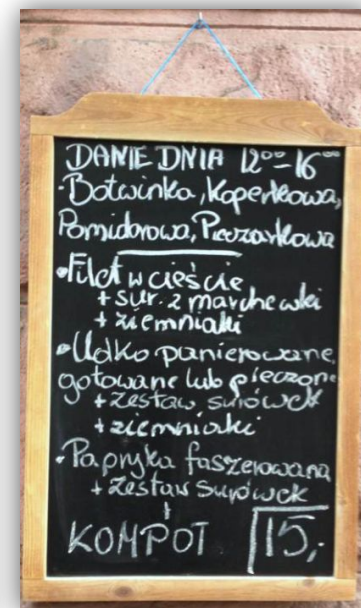 DANIE DNIA 12⁰⁰-16⁰⁰
- Botwinka, Koperkowa,
Pomidorowa, Pieczarkowa
• Filet w cieście
+ sur. z marchewki
+ ziemniaki
• Udko panierowane,
gotowane lub pieczone
+ zestaw surówek
+ ziemniaki
• Papryka faszerowana
+ zestaw surówek
+
KOMPOT 15,-